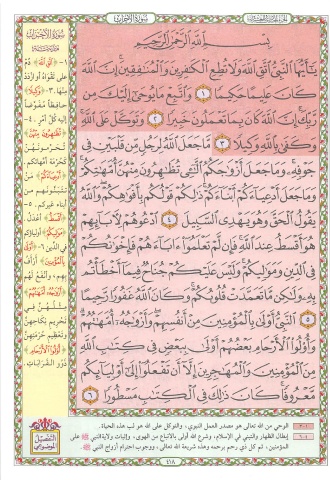 سُورَةُ الأَحْزَابِ
بِسْمِ اللَّهِ الرَّحْمَٰنِ الرَّحِيمِ
يَا أَيُّهَا النَّبِيُّ اتَّقِ اللَّهَ وَلَا تُطِعِ الْكَافِرِينَ وَالْمُنَافِقِينَ إِنَّ اللَّهَ
كَانَ عَلِيمًا حَكِيمًا ١ وَاتَّبِعْ مَا يُوحَىٰ إِلَيْكَ مِن
رَّبِّكَ إِنَّ اللَّهَ كَانَ بِمَا تَعْمَلُونَ خَبِيرًا ٢ وَتَوَكَّلْ عَلَى اللَّهِ
وَكَفَىٰ بِاللَّهِ وَكِيلًا ٣ مَّا جَعَلَ اللَّهُ لِرَجُلٍ مِّن قَلْبَيْنِ فِي
جَوْفِهِ وَمَا جَعَلَ أَزْوَاجَكُمُ اللَّائِي تُظَاهِرُونَ مِنْهُنَّ أُمَّهَاتِكُمْ
وَمَا جَعَلَ أَدْعِيَاءَكُمْ أَبْنَاءَكُمْ ذَٰلِكُمْ قَوْلُكُم بِأَفْوَاهِكُمْ وَاللَّهُ
يَقُولُ الْحَقَّ وَهُوَ يَهْدِي السَّبِيلَ ٤ ادْعُوهُمْ لِآبَائِهِمْ
هُوَ أَقْسَطُ عِندَ اللَّهِ فَإِن لَّمْ تَعْلَمُوا آبَاءَهُمْ فَإِخْوَانُكُمْ
فِي الدِّينِ وَمَوَالِيكُمْ وَلَيْسَ عَلَيْكُمْ جُنَاحٌ فِيمَا أَخْطَأْتُم
بِهِ وَلَٰكِن مَّا تَعَمَّدَتْ قُلُوبُكُمْ وَكَانَ اللَّهُ غَفُورًا رَّحِيمًا
٥ النَّبِيُّ أَوْلَىٰ بِالْمُؤْمِنِينَ مِنْ أَنفُسِهِمْ وَأَزْوَاجُهُ أُمَّهَاتُهُمْ
وَأُولُو الْأَرْحَامِ بَعْضُهُمْ أَوْلَىٰ بِبَعْضٍ فِي كِتَابِ اللَّهِ
مِنَ الْمُؤْمِنِينَ وَالْمُهَاجِرِينَ إِلَّا أَن تَفْعَلُوا إِلَىٰ أَوْلِيَائِكُم
مَّعْرُوفًا كَانَ ذَٰلِكَ فِي الْكِتَابِ مَسْطُورًا ٦
سُورَةُ الأَحْزَابِ
١- ﴿اتَّقِ اللَّهَ﴾ دُمْ
عَلَى تَقْوَاهُ أَوْ ازْدَدْ
مِنْهَا. ٣- ﴿وَكِيلًا﴾
حَافِظًا مُفَوَّضًا
إِلَيْهِ كُلُّ أَمْرٍ. ٤-
﴿تُظَاهِرُونَ مِنْهُنَّ﴾
تُحَرِّمُونَهُنَّ
كَحُرْمَةِ أُمَّهَاتِكُمْ
﴿أَدْعِيَاءَكُمْ﴾ مَنْ
تَتَبَنَّوْنَهُمْ مِنْ
أَبْنَاءِ غَيْرِكُمْ. ٥-
﴿أَقْسَطُ﴾ أَعْدَلُ
﴿مَوَالِيكُمْ﴾ أَوْلِيَاؤُكُمْ
فِي الدِّينِ. ٦- ﴿أَوْلَىٰ
بِالْمُؤْمِنِينَ﴾ أَرْأَفُ
بِهِمْ، وَأَنْفَعُ لَهُمْ
﴿أَزْوَاجُهُ أُمَّهَاتُهُمْ﴾
مِثْلُهُنَّ فِي
تَحْرِيمِ نِكَاحِهِنَّ
وَتَعْظِيمِ حُرْمَتِهِنَّ
﴿أُولُو الْأَرْحَامِ﴾
ذَوُو الْقَرَابَاتِ.
الوحي من الله تعالى هو مصدر العمل النبوي، والتوكل على الله هو لب هذه الحياة.
إبطال الظهار والتبني في الإسلام، وشرع الله أولى بالاتباع من الهوى، وإثبات ولاية النبي ﷺ على
المؤمنين، ثم كل ذي رحم برحمه وهذه شريعة الله تعالى، ووجوب احترام أزواج النبي ﷺ.
التفصيل
الموضوعي
٤١٨